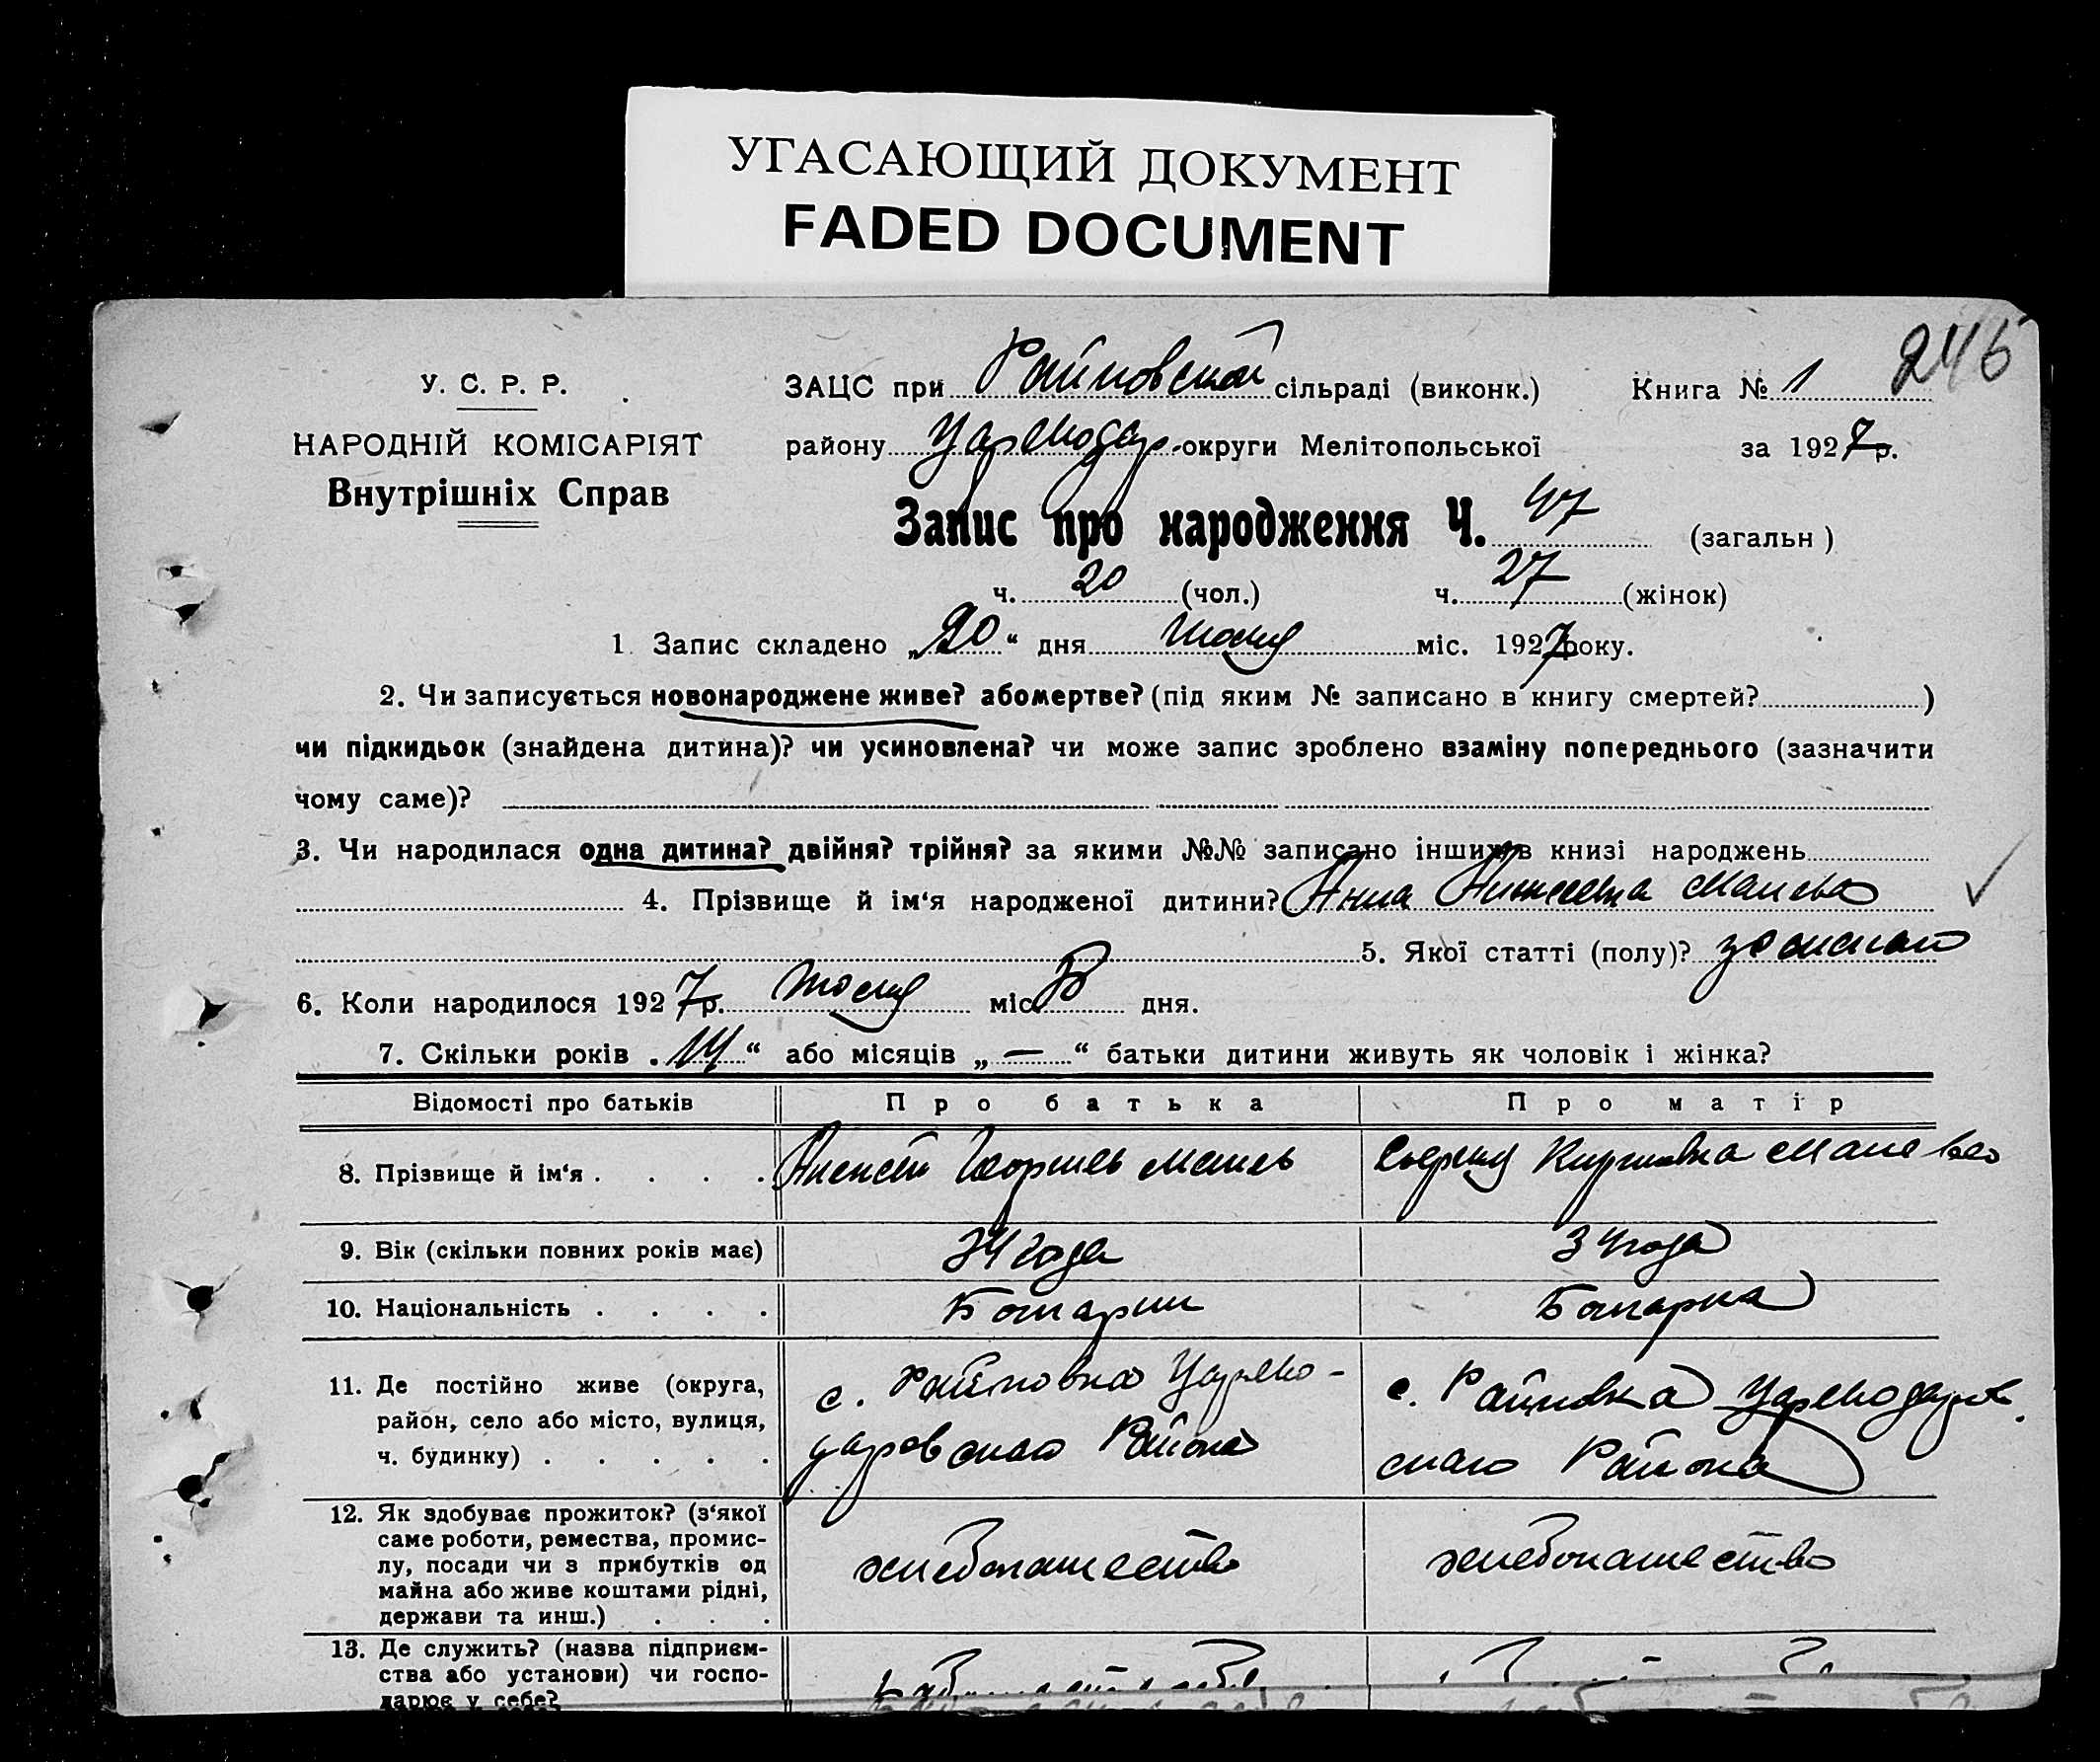 УГАСАЮЩИЙ ДОКУМЕНТ
FADED DOCUMENT
246
У. С. Р. Р.
НАРОДНІЙ КОМІСАРІЯТ
Внутрішніх Справ
ЗАЦС при Райновской сільраді (виконк.) Книга № 1
району Цареводар. округи Мелітопольської за 1927 р.
Запис про народження Ч. 47 (загальн)
ч. 20 (чол.) ч. 27 (жінок)
1. Запис складено „20“ дня міс. 1927 року.
2. Чи записується новонароджене живе? або мертве? (під яким № записано в книгу смертей? )
чи підкидьок (знайдена дитина)? чи усиновлена? чи може запис зроблено взаміну попереднього (зазначити
чому саме)?
3. Чи народилася одна дитина? двійня? трійня? за якими №№ записано інших в книзі народжень
4. Прізвище й ім‘я народженої дитини? Анна
5. Якої статті (полу)?
6. Коли народилося 1927 р. міс. дня.
7. Скільки років „14“ або місяців „—“ батьки дитини живуть як чоловік і жінка?
Відомості про батьків Про батька Про матір
8. Прізвище й ім‘я . . . .
9. Вік (скільки повних років має) 34 года 34 года
10. Національність . . . . Болгарин Болгарка
11. Де постійно живе (округа,
район, село або місто, вулиця,
ч. будинку) . . . . .
с. Райновка Царево-
даровскаго Района
с. Райновка Цареводаров
скаго Района
12. Як здобуває прожиток? (з‘якої
саме роботи, ремества, промис-
лу, посади чи з прибутків од
майна або живе коштами рідні,
держави та инш.) . . .
хлебопашество хлебопашество
13. Де служить? (назва підприєм-
ства або установи) чи госпо-
дарює у себе?